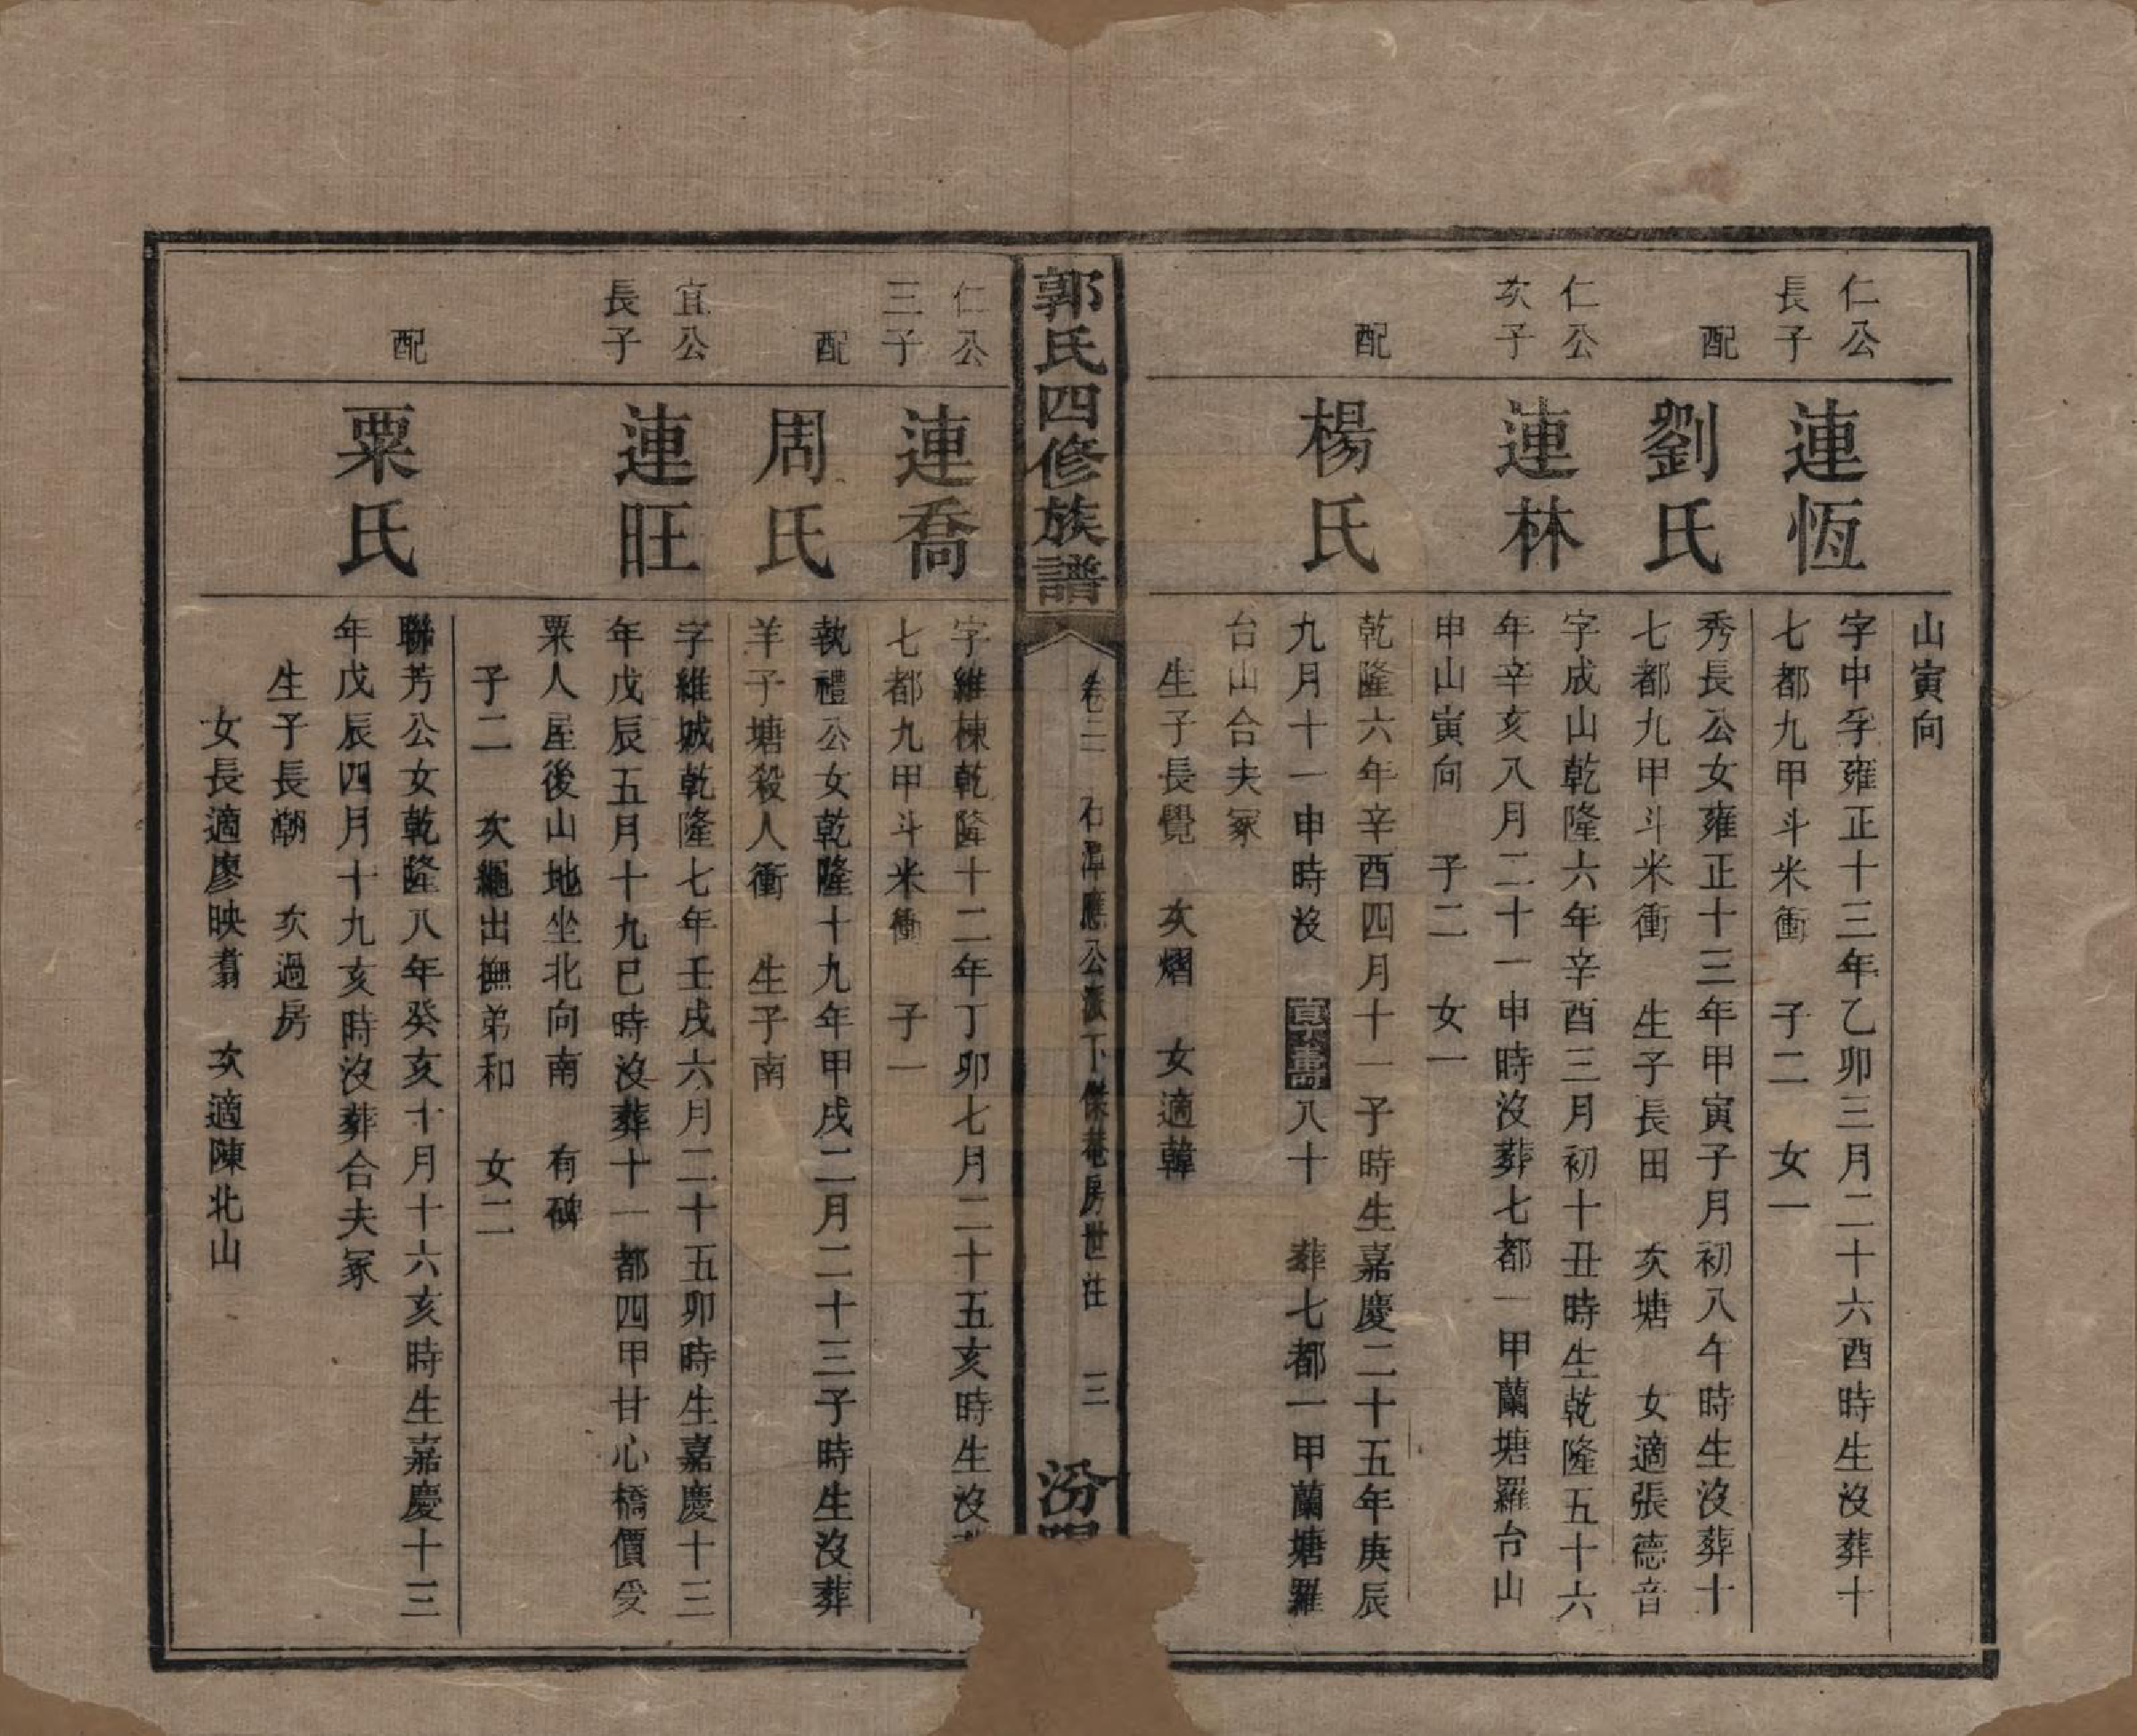 山寅向
仁公
長子
連恆
字中孚雍正十三年乙卯三月二十六酉時生沒葬十
七都九甲斗米衝　子二　女一
配
劉氏
秀長公女雍正十三年甲寅子月初八午時生沒葬十
七都九甲斗米衝　生子長田　次塘　女適張德音
仁公
次子
連林
字成山乾隆六年辛酉三月初十丑時生乾隆五十六
年辛亥八月二十一申時沒葬七都一甲蘭塘羅台山
申山寅向　子二　女一
配
楊氏
乾隆六年辛酉四月十一子時生嘉慶二十五年庚辰
九月十一申時沒　壽八十　葬七都一甲蘭塘羅
台山合夫冢
生子長覺　次熠　女適韓
郭氏四修族譜
卷三　石潭應公派下傑菴房世注　三
汾陽
仁公
三子
連喬
字維棟乾隆十二年丁卯七月二十五亥時生沒
七都九甲斗米衝　子一
配
周氏
執禮公女乾隆十九年甲戌二月二十三子時生沒葬
羊子塘殺人衝　生子南
宜公
長子
連旺
字維城乾隆七年壬戌六月二十五卯時生嘉慶十三
年戊辰五月十九巳時沒葬十一都四甲甘心橋價受
粟人屋後山地坐北向南　有碑
子二　次繩出撫弟和　女二
配
粟氏
聯芳公女乾隆八年癸亥十月十六亥時生嘉慶十三
年戊辰四月十九亥時沒葬合夫冢
生子長瀚　次過房
女長適廖映翥　次適陳北山